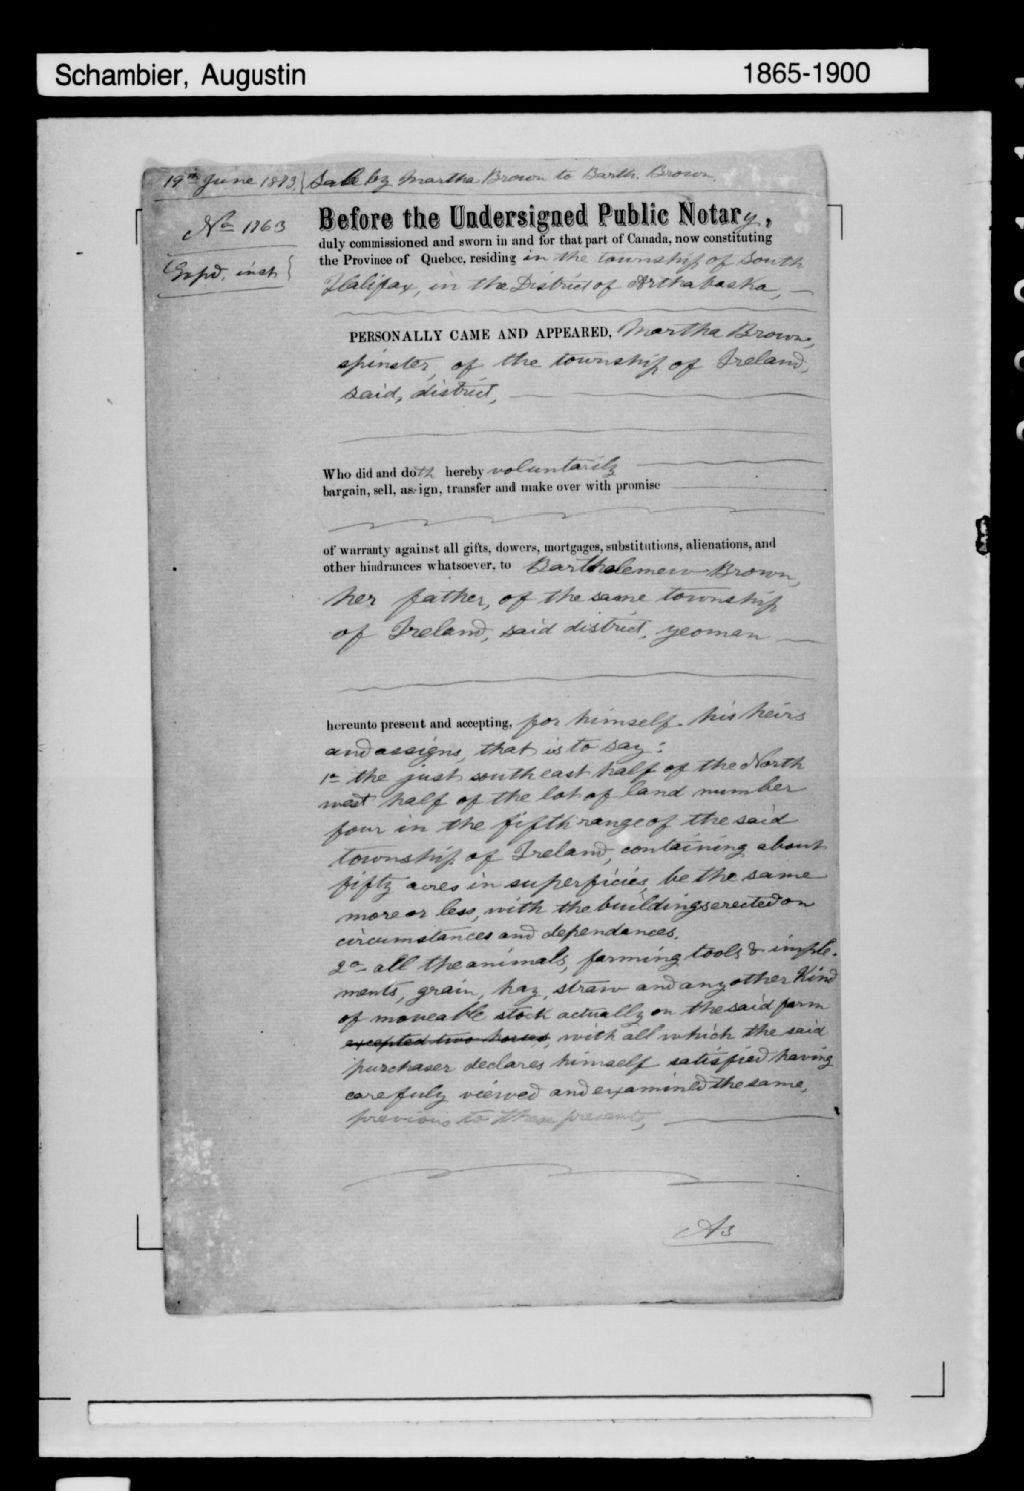 Schambier, Augustin 1865-1900
19th June 1883. Sale by Martha Brown to Barth. Brown.
No 1163
Before the Undersigned Public Notary,
duly commissioned and sworn in and for that part of Canada, now constituting
the Province of Quebec, residing in the township of South
Halifax, in the District of Arthabaska,
PERSONALLY CAME AND APPEARED, Martha Brown,
spinster, of the township of Ireland,
said, district,
Who did and doth hereby voluntarily
bargain, sell, assign, transfer and make over with promise
of warranty against all gifts, dowers, mortgages, substitutions, alienations, and
other hindrances whatsoever, to Bartholemew Brown,
her father, of the same township
of Ireland, said district, yeoman
hereunto present and accepting, for himself his heirs
and assigns, that is to say:
1o the just south east half of the North
west half of the lot of land number
four in the fifth range of the said
township of Ireland, containing about
fifty acres in superficies, be the same
more or less, with the buildings erected on
circumstances and dependances.
2o all the animals, farming tools & imple-
ments, grain, hay, straw and any other Kind
of moveable stock actually on the said farm
excepted two horses, with all which the said
purchaser declares himself satisfied having
carefuly viewed and examined the same,
previous to these presents,